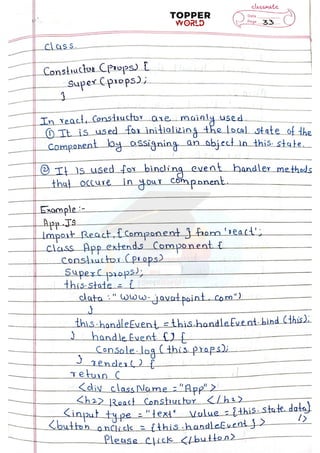 classmate
TOPPER
WORLD
Date
Page 33
class
Constructor (props) {
super (props);
}
In react, Constructor are mainly used
① It is used for initializing the local state of the
Component by assigning an object in this. state.
② It is used for binding event handler methods
that occure in your component.
Example :-
App.JS
Import React, {Component } from 'react';
class App extends Component {
constructor (props)
Super( props);
this.state = {
data : " www.javatpoint.com")
}
this.handleEvent = this.handleEvent.bind (this);
} handle Event () {
Console.log ( this props);
} render() {
return (
<div className = "App" >
<h2> React Constructor </h2>
<input type = "text" Value = {this.state.data}
/>
<button onClick = {this.handleEvent } >
Please Click </button>